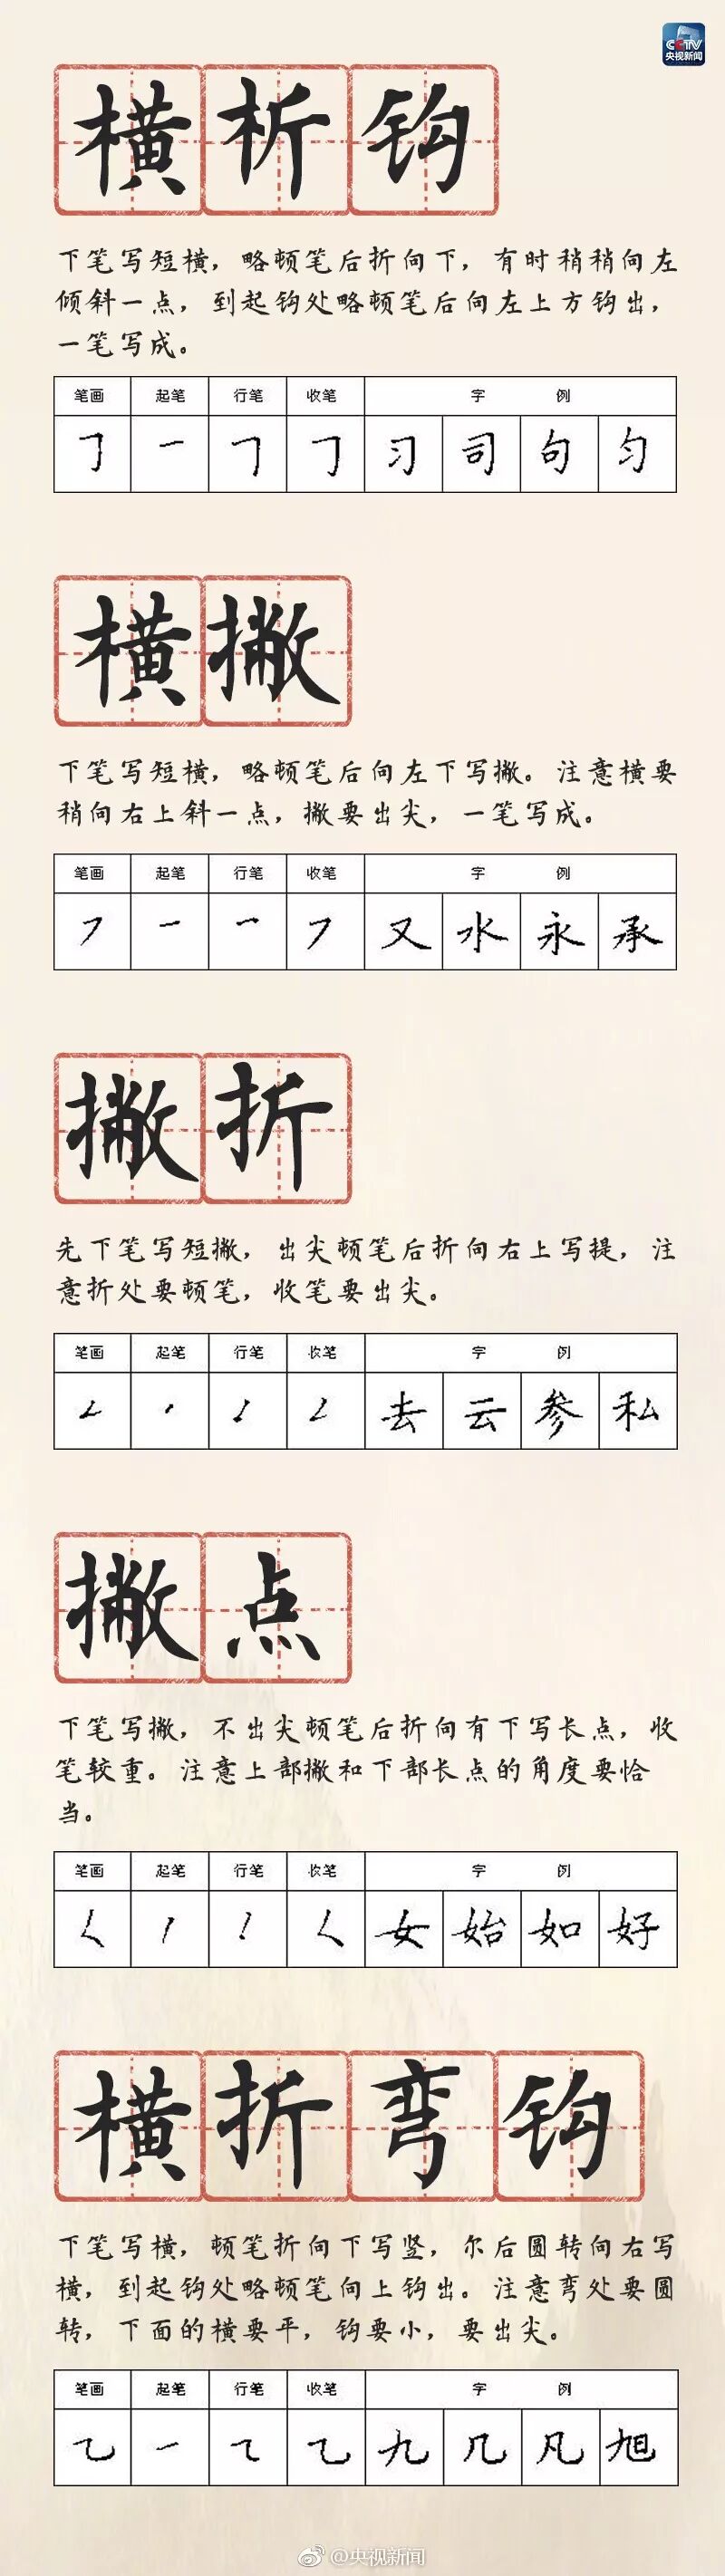 CCTV
央视新闻
横析钩
下笔写短横，略顿笔后折向下，有时稍稍向左
倾斜一点，到起钩处略顿笔后向左上方钩出，
一笔写成。
笔画 起笔 行笔 收笔 字 例
㇆ 一 ㇆ ㇆ 习 司 句 匀
横撇
下笔写短横，略顿笔后向左下写撇。注意横要
稍向右上斜一点，撇要出尖，一笔写成。
笔画 起笔 行笔 收笔 字 例
㇇ 一 乛 ㇇ 又 水 永 承
撇折
先下笔写短撇，出尖顿笔后折向右上写提，注
意折处要顿笔，收笔要出尖。
笔画 起笔 行笔 收笔 字 例
去 云 参 私
撇点
下笔写撇，不出尖顿笔后折向有下写长点，收
笔较重。注意上部撇和下部长点的角度要恰
当。
笔画 起笔 行笔 收笔 字 例
女 始 如 好
横折弯钩
下笔写横，顿笔折向下写竖，尔后圆转向右写
横，到起钩处略顿笔向上钩出。注意弯处要圆
转，下面的横要平，钩要小，要出尖。
笔画 起笔 行笔 收笔 字 例
九 几 凡 旭
@央视新闻